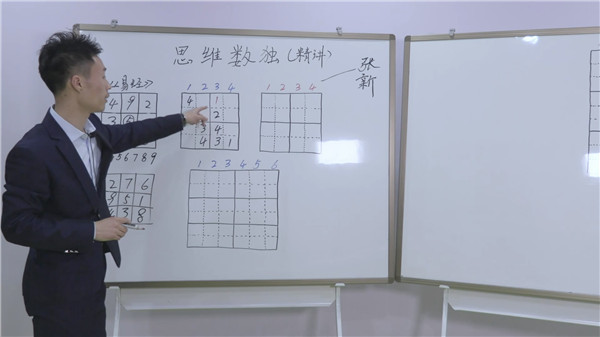 思维数独(精讲)
张新
《易经》
4 9 2
3 5
5 6 7 8 9
2 7 6
9 5 1
4 3 8
1 2 3 4
4 1
2
3 4
4 3 1
1 2 3 4
1 2 3 4 5 6